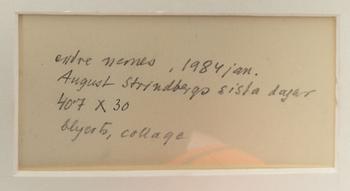 endre nemes, 1984 jan.
August Strindbergs sista dagar
407 X 30
blyerts, collage